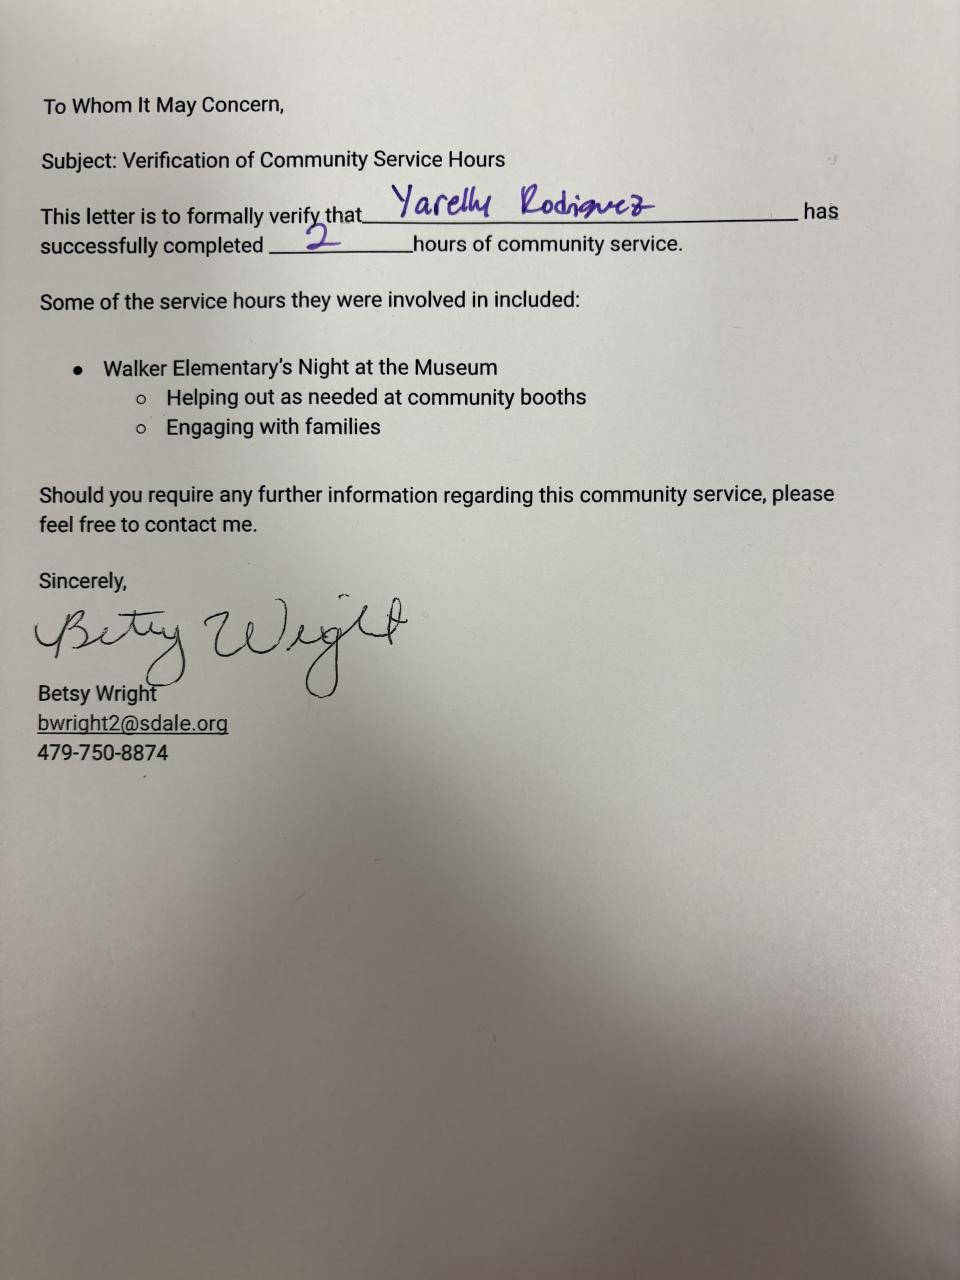 To Whom It May Concern,
Subject: Verification of Community Service Hours
This letter is to formally verify that Yarelly Rodriguez has
successfully completed 2 hours of community service.
Some of the service hours they were involved in included:
● Walker Elementary's Night at the Museum
○ Helping out as needed at community booths
○ Engaging with families
Should you require any further information regarding this community service, please
feel free to contact me.
Sincerely,
Betsy Wright
Betsy Wright
bwright2@sdale.org
479-750-8874